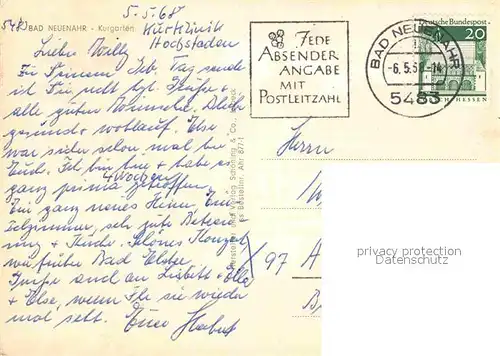 5.5.68
5483 BAD NEUENAHR - Kurgarten
Kurklinik
Hochstaden
Lieber Willy
Zu Deinem Geb. Tag sende
ich Dir recht hzl. Grüße +
alle guten Wünsche. Bleib
gesund + wohlauf. Else
war sicher schon mal bei
Euch. Ich bin hier + habe es
4 Wochen
ganz prima getroffen.
Ein ganz neues Heim, Ein-
zelzimmer, sehr gute Betreu-
ung + Küche. Schönes Konzert
wie früher Bad Elster.
Grüße auch an Lisbeth + Ella
+ Else, wenn Ihr sie wieder
mal seht. Euer Herbert
Hersteller und Verlag Schöning & Co., Lübeck
Bestellnr. Ahr 877-1
JEDE
ABSENDER
ANGABE
MIT
POSTLEITZAHL
BAD NEUENAHR
-6.5.68-14
5483
Deutsche Bundespost
20
HESSEN
Herrn
97 A
privacy protection
Datenschutz